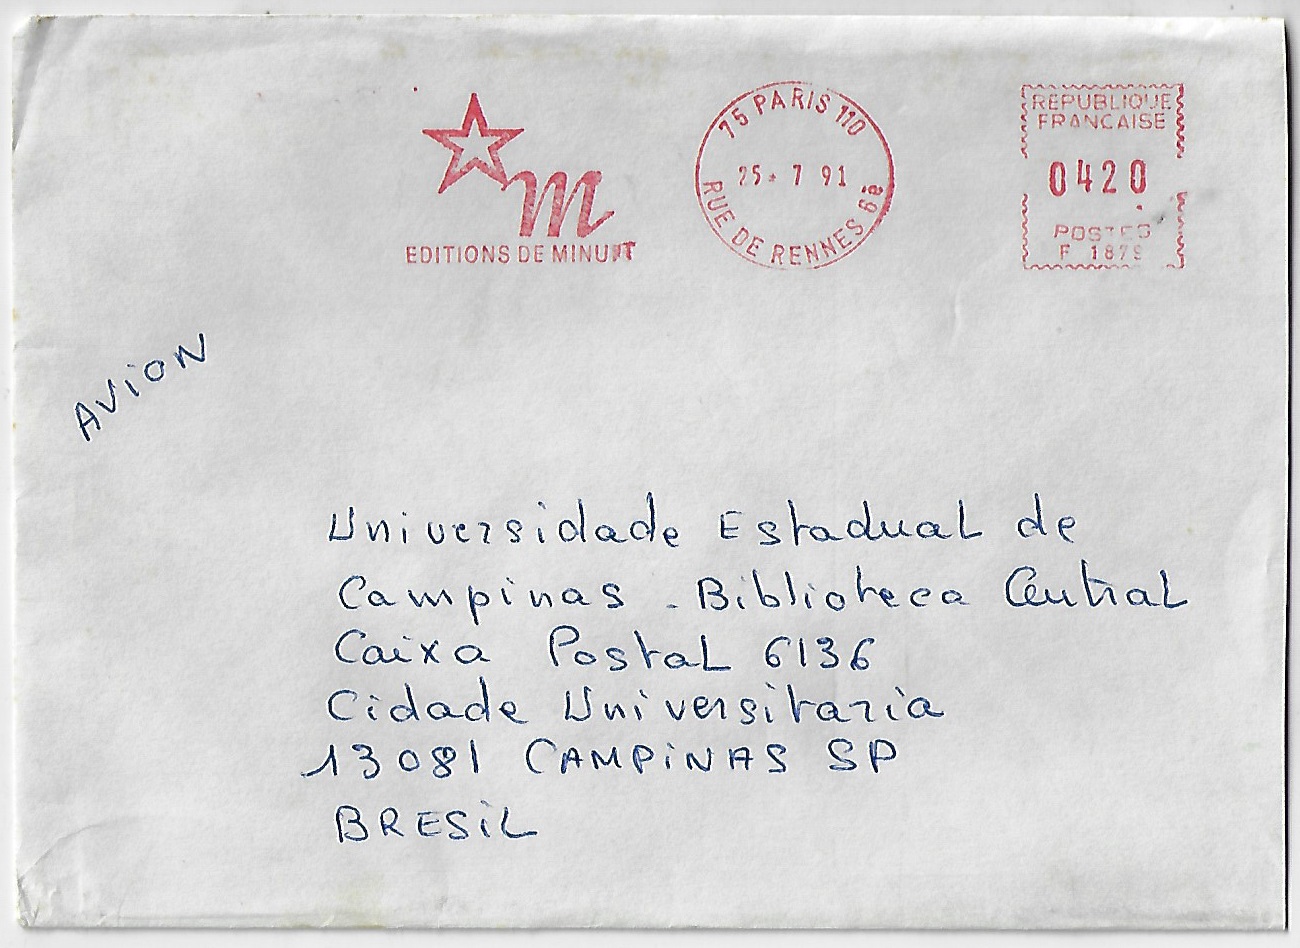 m
EDITIONS DE MINUIT
75 PARIS 110
25 * 7 91
RUE DE RENNES 6è
REPUBLIQUE
FRANCAISE
0420
POSTES
F 1879
AVION
Universidade Estadual de
Campinas - Biblioteca Central
Caixa Postal 6136
Cidade Universitaria
13081 CAMPINAS SP
BRESIL